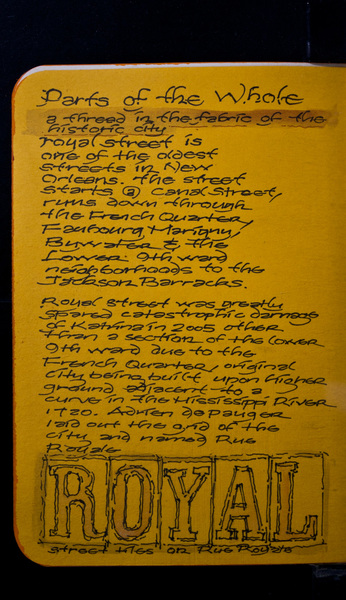 Parts of the Whole
a thread in the fabric of the
historic city
royal street is
one of the oldest
streets in New
Orleans. the street
starts @ Canal Street,
runs down through
the French Quarter,
Faubourg Marigny,
Bywater & the
Lower 9th ward
neighborhoods to the
Jackson Barracks.
Royal street was greatly
spared catastrophic damage
of Katrina in 2005 other
than a section of the lower
9th ward due to the
French Quarter, original
city being built upon higher
ground adjacent to a
curve in the Mississippi River
1720. Adrien dePauger
laid out the grid of the
city and named Rue
Royale
ROYAL
street tiles on Rue Royale